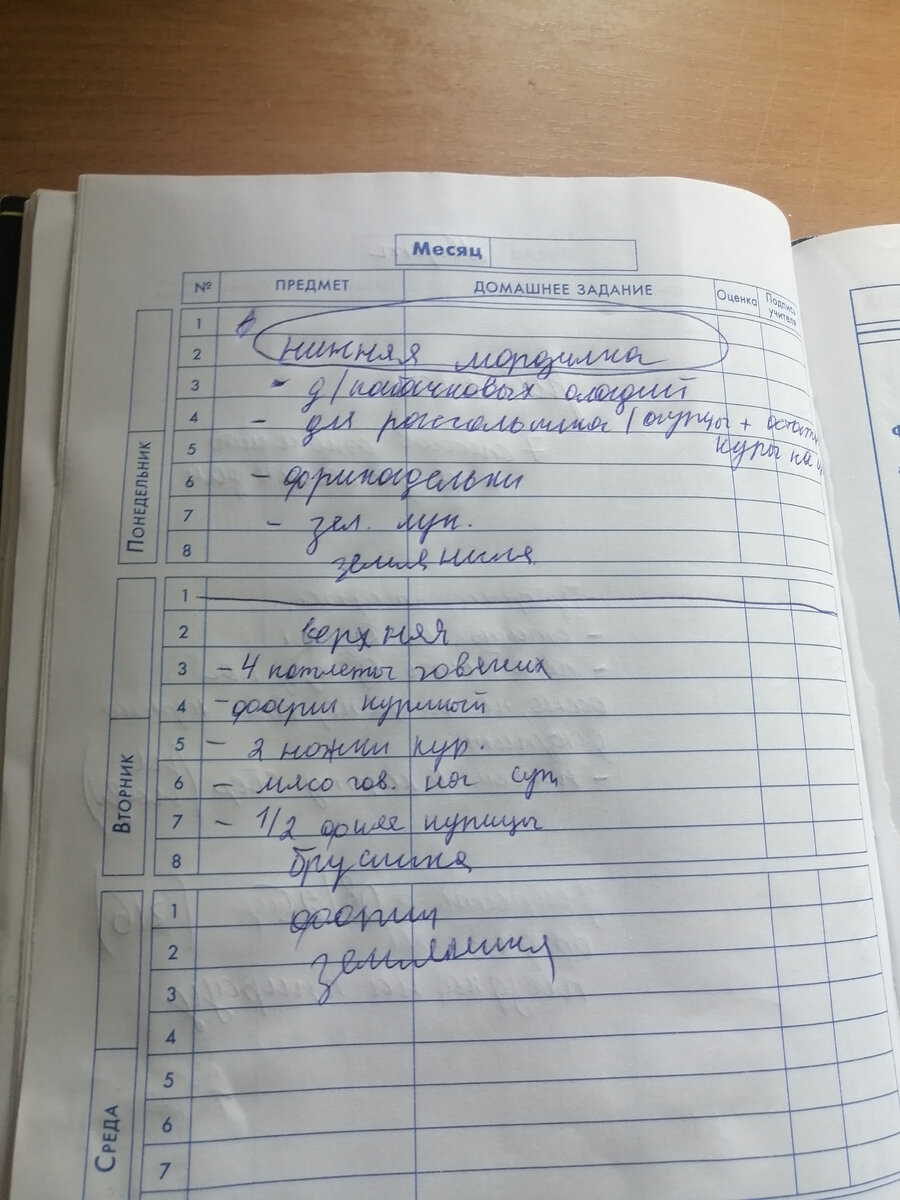 Месяц
№ ПРЕДМЕТ ДОМАШНЕЕ ЗАДАНИЕ Оценка Подпись учителя
ПОНЕДЕЛЬНИК
1
2 нижняя морозилка
3 - д/кабачковых оладий
4 - для рассольника (огурцы +
5 куры на
6 - фрикадельки
7 - зел. лук.
8 земляника
ВТОРНИК
1
2 верхняя
3 - 4 котлеты говяжих
4 - фарш куриный
5 - 2 ножки кур.
6 - мясо гов. на суп
7 - 1/2 филе курицы
8 брусника
СРЕДА
1 фарш
2 земляника
3
4
5
6
7